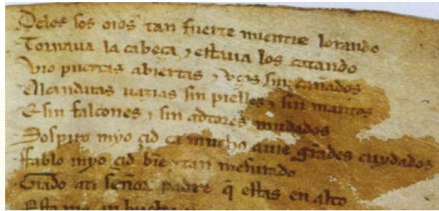 Delos sos oios tan fuerte mientre lorando
Tornaua la cabeça y estaua los catando
Vio puertas abiertas y vços sin cañados
Alcandaras uazias sin pielles y sin mantos
E sin falcones y sin adtores mudados
Sospiro myo çid ca mucho auie grandes cuydados
Fablo myo çid bien y tan mesurado
Grado ati señor padre q estas en alto
Esto me an buelto